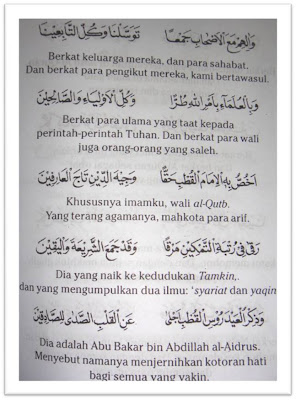 وَآلِهِمْ مَعَ الْأَصْحَابِ جَمْعًا تَوَسَّلْنَا وَكُلِّ التَّابِعِيْنَا
Berkat keluarga mereka, dan para sahabat.
Dan berkat para pengikut mereka, kami bertawasul.
وَبِالْعُلَمَاءِ بِأَمْرِ اللهِ طُرًّا وَكُلِّ الْأَوْلِيَاءِ وَالصَّالِحِيْنَ
Berkat para ulama yang taat kepada
perintah-perintah Tuhan. Dan berkat para wali
juga orang-orang yang saleh.
أَخُصُّ بِهِ الْإِمَامَ الْقُطْبَ حَقًّا وَجِيْهَ الدِّيْنِ تَاجَ الْعَارِفِيْنَ
Khususnya imamku, wali al-Qutb.
Yang terang agamanya, mahkota para arif.
رَقَى فِي رُتْبَةِ التَّمْكِيْنِ مَرْقًى وَقَدْ جَمَعَ الشَّرِيْعَةَ وَالْيَقِيْنَ
Dia yang naik ke kedudukan Tamkin,.
dan yang mengumpulkan dua ilmu: 'syariat dan yaqin
وَذِكْرُ الْعَيْدَرُوْسِ الْقُطْبِ أَجْلَى عَنِ الْقَلْبِ الصَّدَى لِلصَّادِقِيْنَ
Dia adalah Abu Bakar bin Abdillah al-Aidrus.
Menyebut namanya menjernihkan kotoran hati
bagi semua yang yakin.